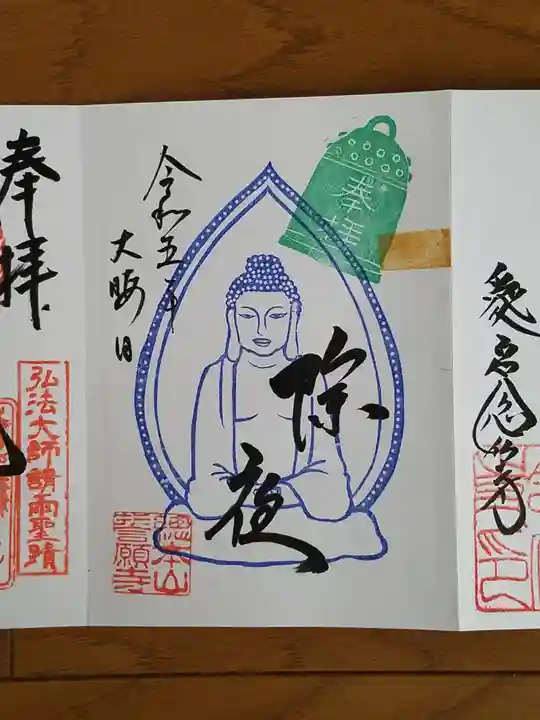 愛宕念仏寺
奉拝
令和五年
大晦日
除夜
總本山
誓願寺
奉拝
弘法大師請雨聖蹟